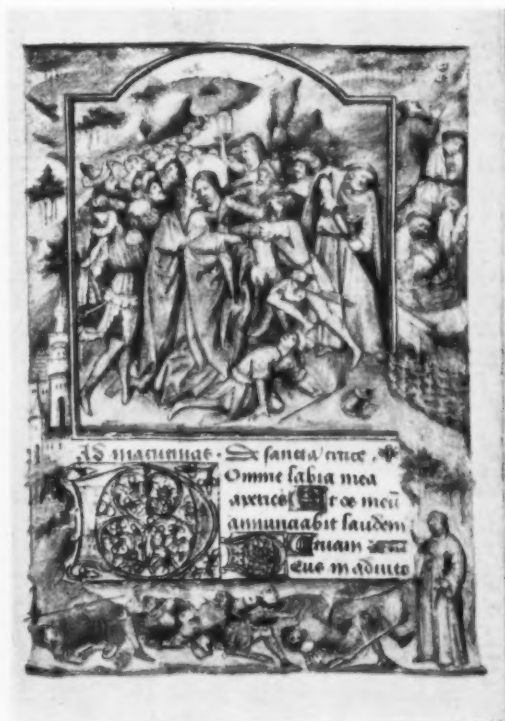 Ad matutinas · De sancta cruce .
DOmine labia mea
aperies Et os meū
annunciabit laudem
tuam
Deus in adiuto